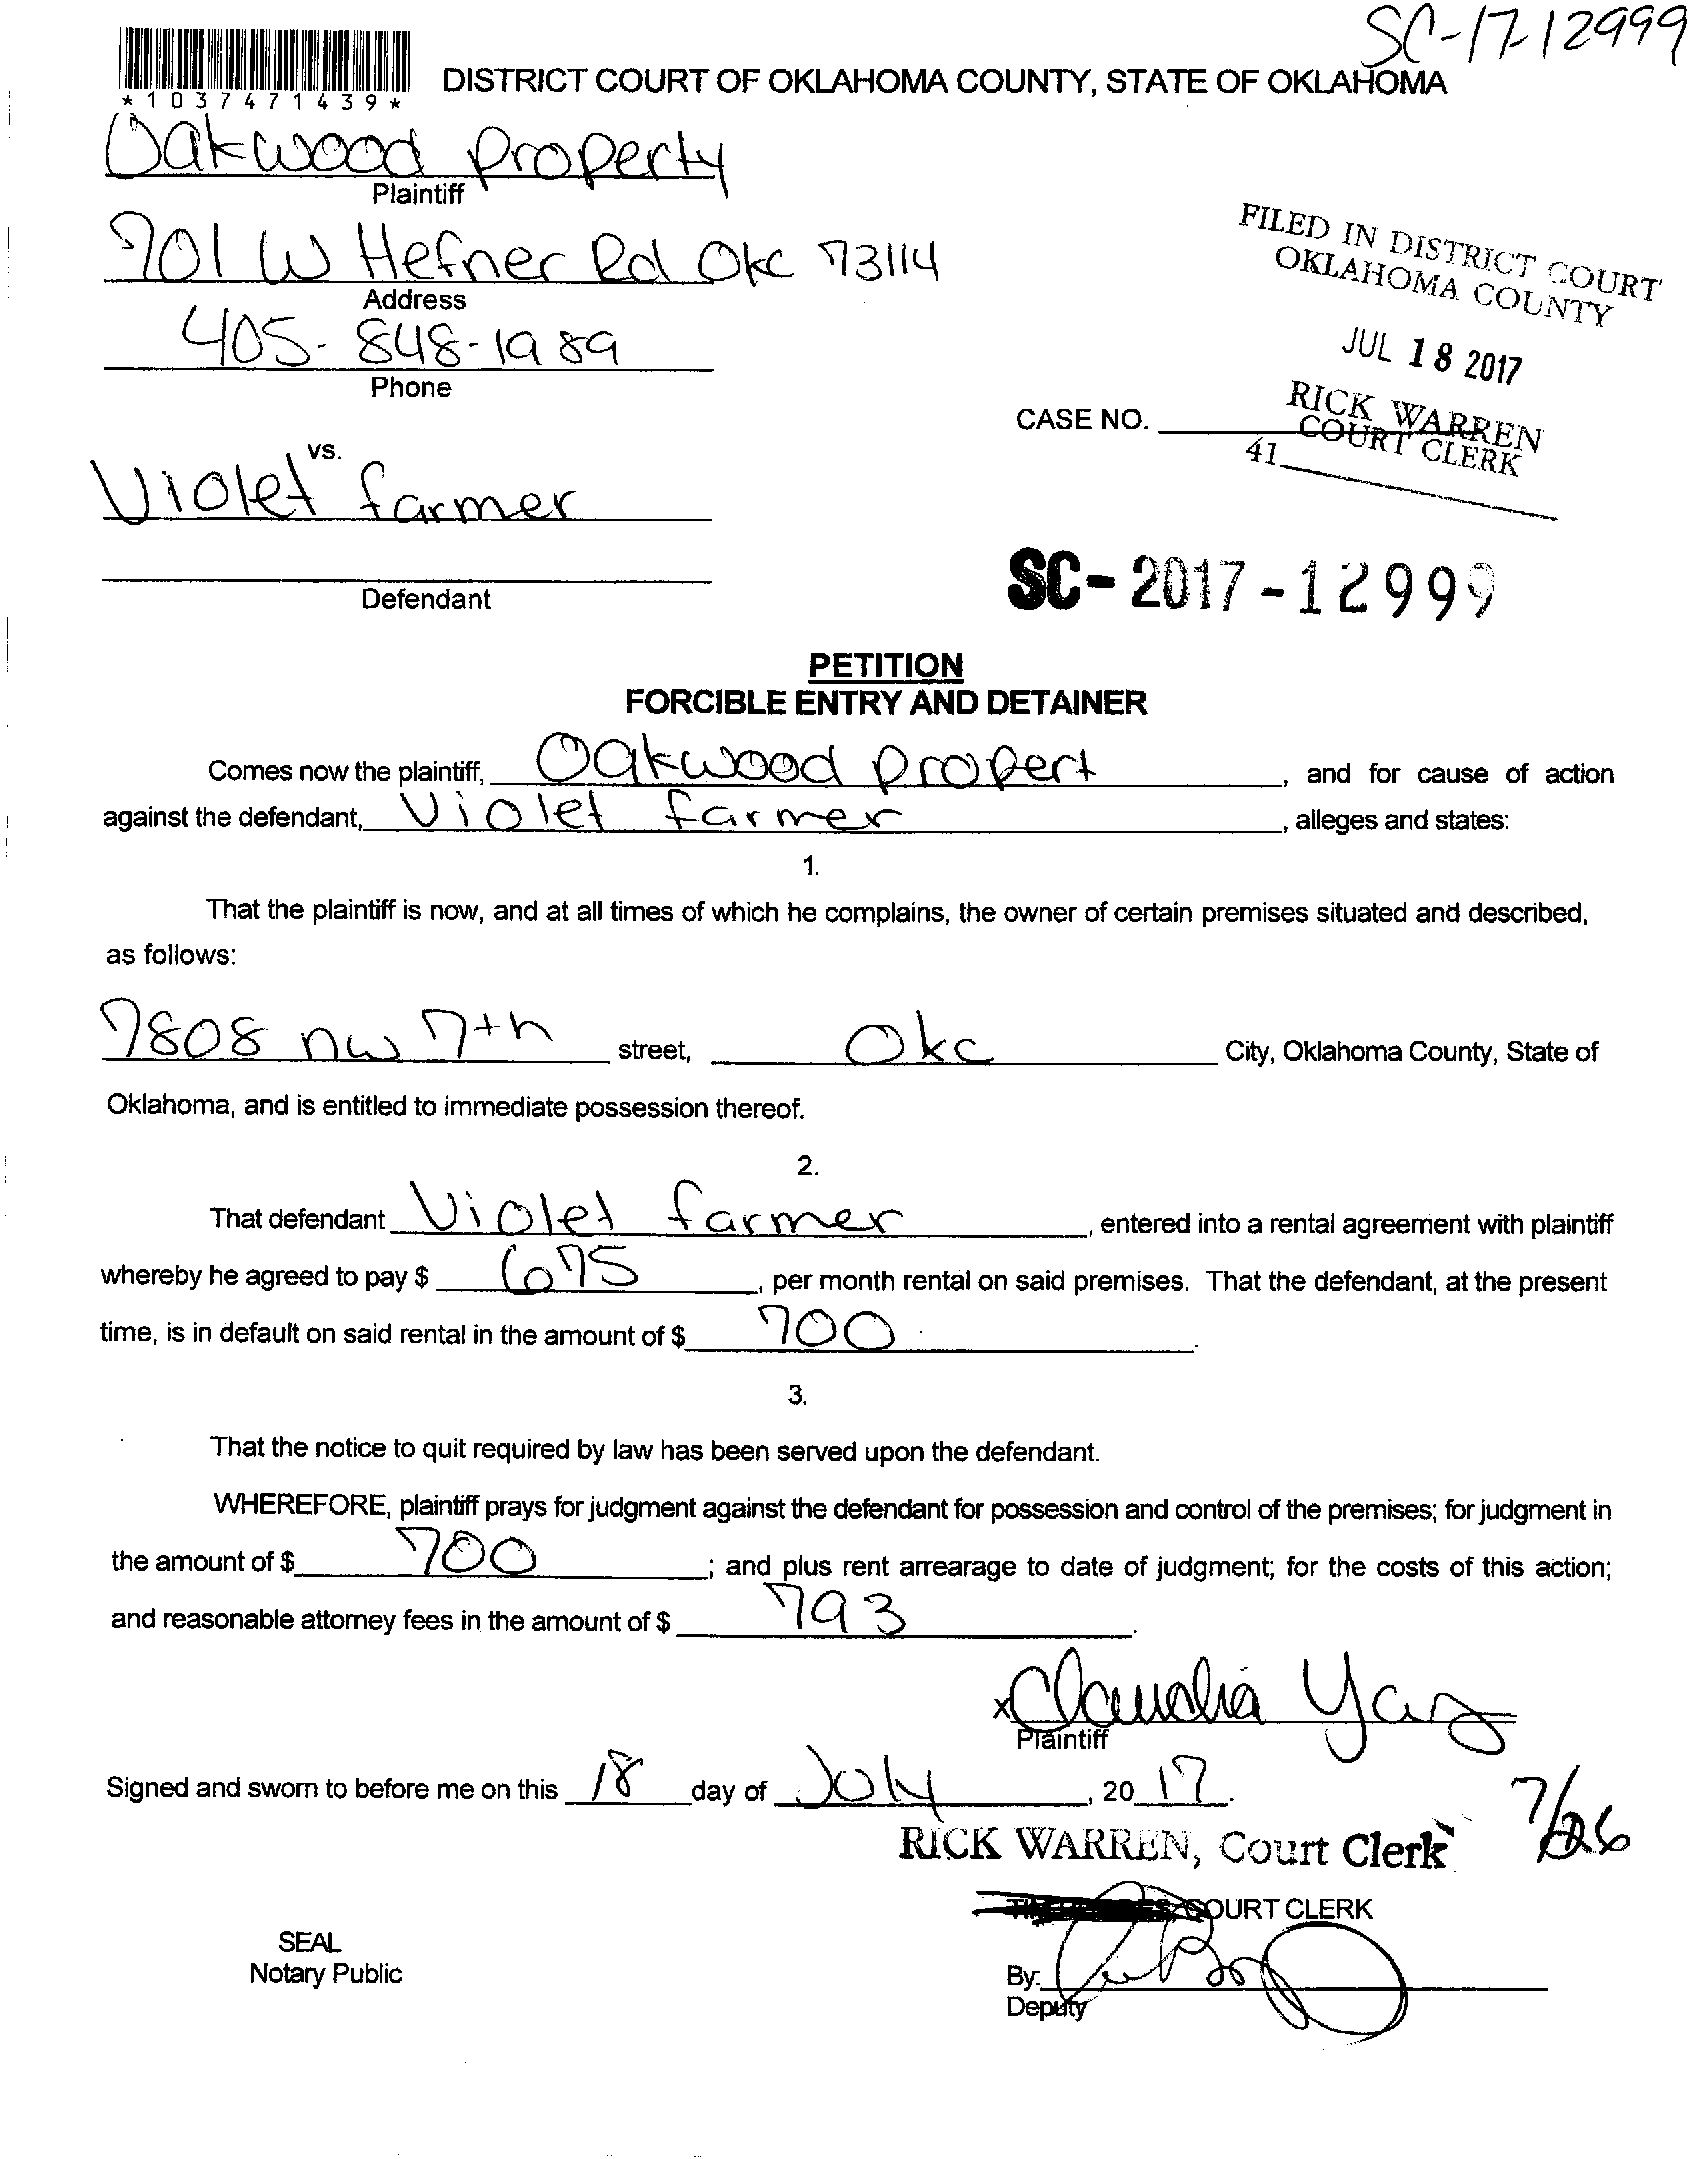 SC-17-12999
*1037471439*
DISTRICT COURT OF OKLAHOMA COUNTY, STATE OF OKLAHOMA
Oakwood Property
Plaintiff
901 W Hefner Rd Okc 73114
Address
405-848-1989
Phone
FILED IN DISTRICT COURT
OKLAHOMA COUNTY
JUL 18 2017
RICK WARREN
COURT CLERK
41
CASE NO.
vs.
Violet farmer
Defendant
SC-2017-12999
PETITION
FORCIBLE ENTRY AND DETAINER
Comes now the plaintiff, Oakwood Propert, and for cause of action
against the defendant, Violet farmer, alleges and states:
1.
That the plaintiff is now, and at all times of which he complains, the owner of certain premises situated and described,
as follows:
7808 nw 7th street, Okc City, Oklahoma County, State of
Oklahoma, and is entitled to immediate possession thereof.
2.
That defendant Violet farmer, entered into a rental agreement with plaintiff
whereby he agreed to pay $ 675, per month rental on said premises. That the defendant, at the present
time, is in default on said rental in the amount of $ 700.
3.
That the notice to quit required by law has been served upon the defendant.
WHEREFORE, plaintiff prays for judgment against the defendant for possession and control of the premises; for judgment in
the amount of $ 700; and plus rent arrearage to date of judgment; for the costs of this action;
and reasonable attorney fees in the amount of $ 793.
x Claudia
Plaintiff
Signed and sworn to before me on this 18 day of July, 2017.
7/26
RICK WARREN, Court Clerk
COURT CLERK
SEAL
Notary Public
By:
Deputy